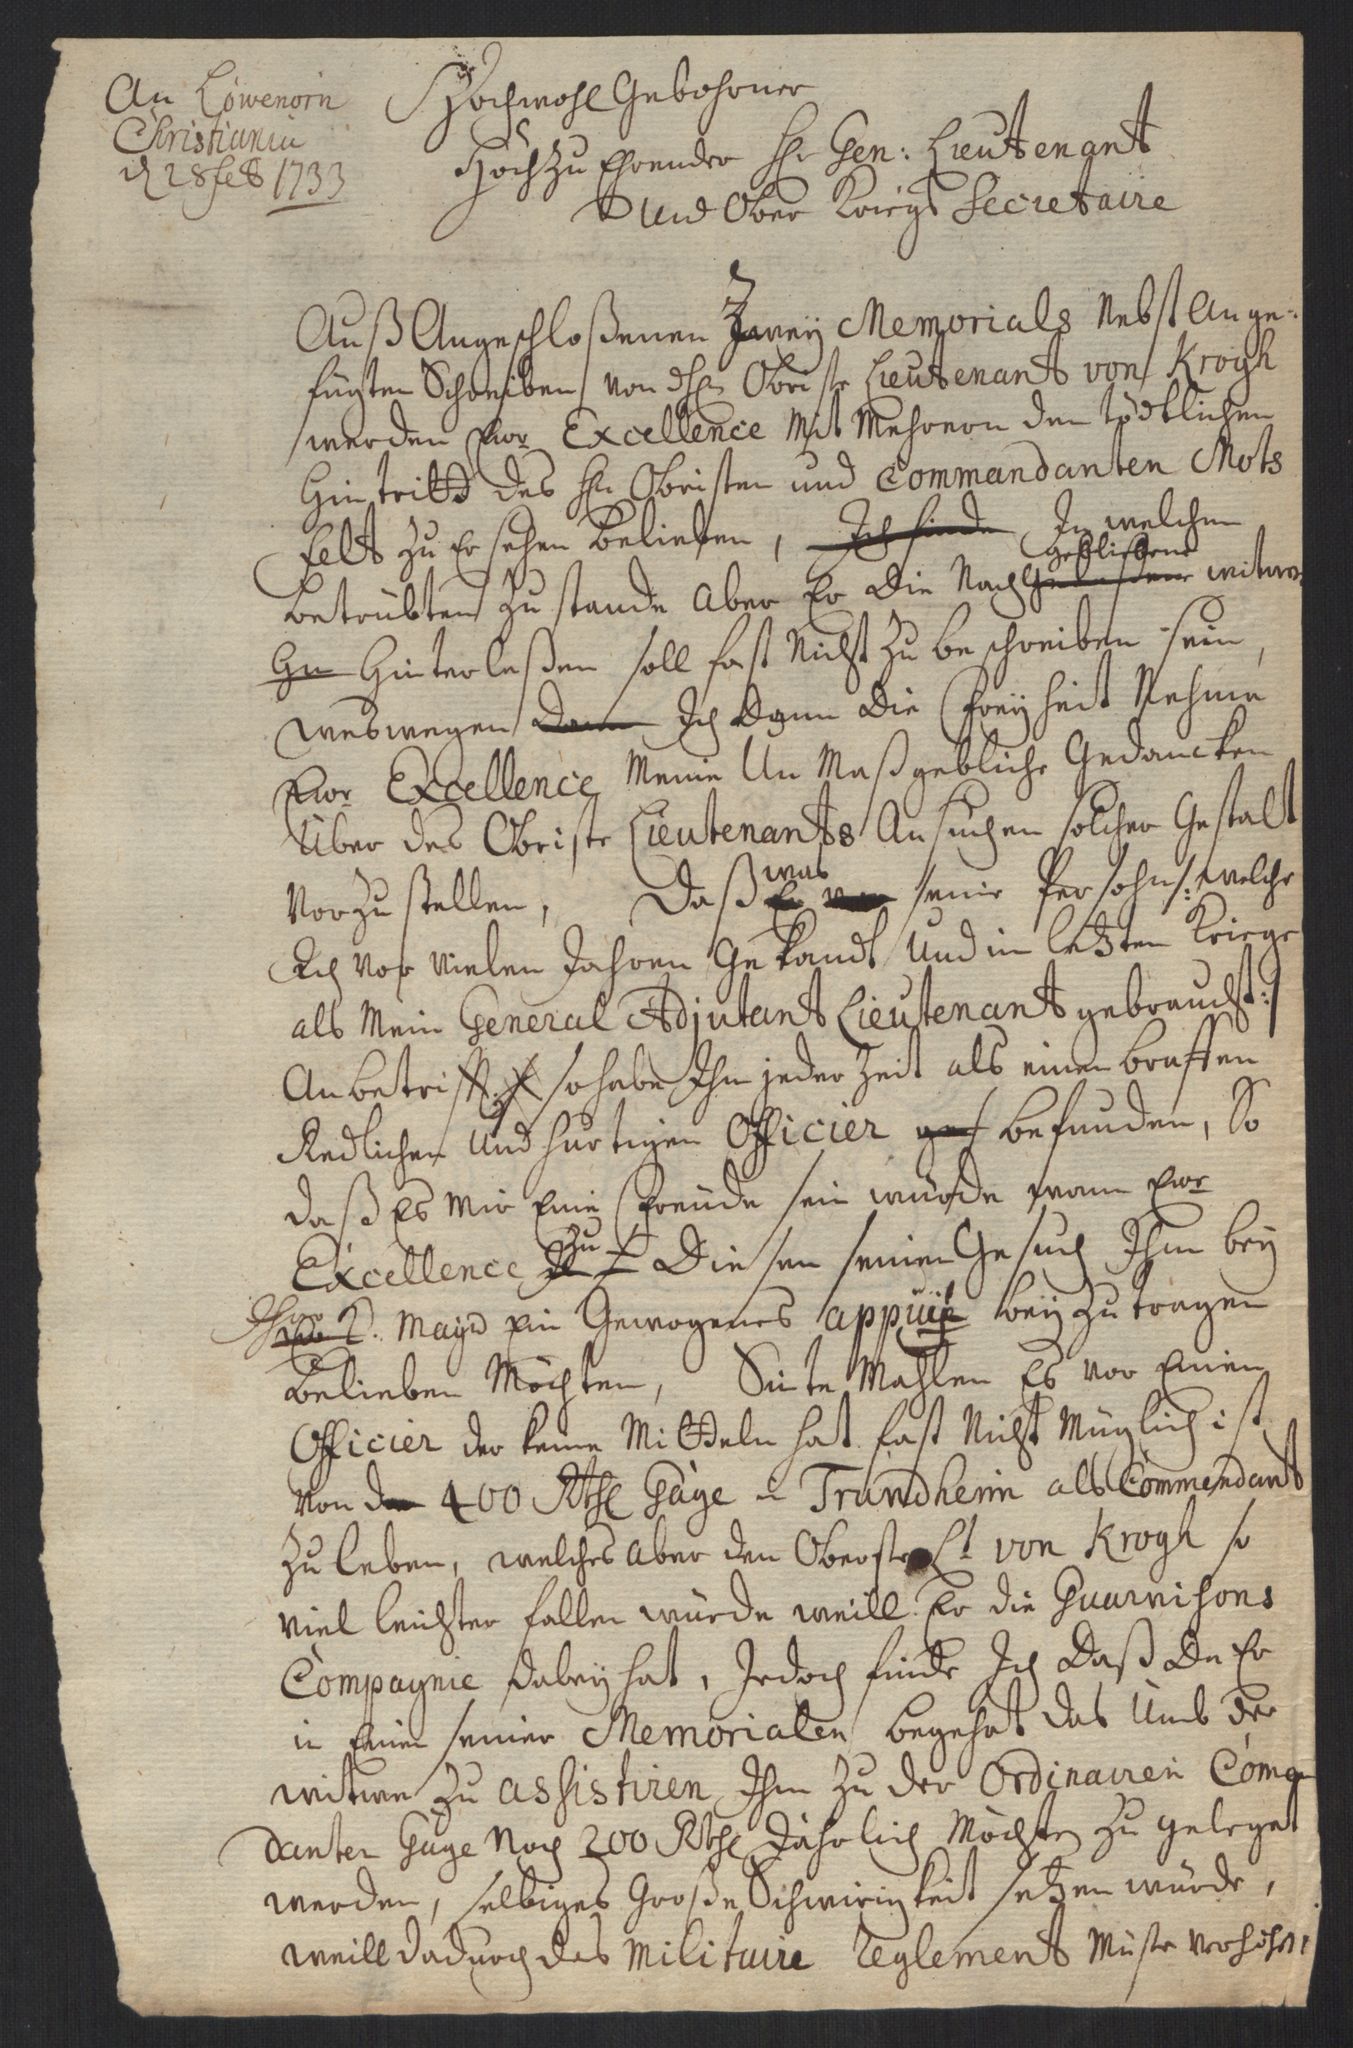 An Löwenörn
Christiania
d 28 feb 1733
Hochwohl Gebohrner
Höchzu Ehrender Hr Gen: Lieutenant
und Ober Kriegs Secretaire
Auß Angeschloßenen Zwey Memorials Nebst Ange-
fügten Schreiben von dHn Obriste Lieutenant von Krogh
werden Ewr Excellence Mit Mehrern den tödtlichen
Hintritt des Hn Obristen und Commandanten Mots
felt zu Ersehen belieben, Ich finde In welchen
betrübten zustande aber Er die Nach gebliebene witwe
Hin Hinterlaßen soll fast Nicht zu beschreiben sein,
weswegen Ich dann die Freyheit Nehme
Ewr Excellence Meine Un Maßgebliche Gedancken
Über des Obriste Lieutenants Ansuchen solcher Gestalt
Vorzustellen, Daß was seine Persohn /: welche
Ich vor vielen Jahren Gekandt Und in letzten Kriege
als Mein General Adjutant Lieutenant gebraucht :/
Anbetrifft so habe Ihn jeder Zeit als einen braffen
Redlichen Und hurtigen Officier befunden, So
daß Es Mir Eine Freüde sein würde wann Ewr
Excellence zu Diesen seinen Gesuch Ihm bey
Ihro K. Mayt ein Gewogenes appuÿe bey zu tragen
belieben Möchten, Sinte Mahlen Es vor Einen
Officier der keine Mitteln hat fast Nicht Müglich ist
von 400 Rthl Gage in Trundheim als Commendant
zu leben, welches aber den Oberste Lt von Krogh so
viel leichter fallen würde weill Er die Guarnisons
Compagnie dabey hat, Jedoch finde Ich Daß Da Er
in Einen seiner Memorialen begehrt das Umb der
witwe zu assistiren Ihm zu der Ordinairen Coman
danten Gage Noch 200 Rthl Jährlich Möchte zu geleget
werden, selbiges Große Schwirigkeit setzen würde,
weill dadurch das Militaire reglement Müste verhöhet